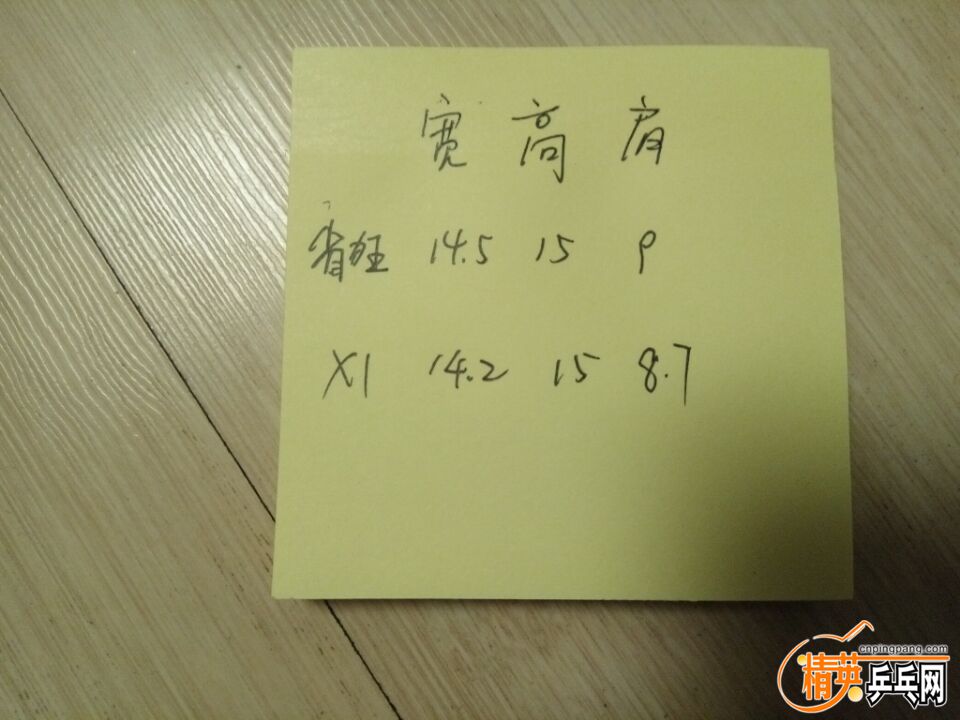 宽 高 肩
省狂 14.5 15 9
X1 14.2 15 8.7
cnpingpang.com
精英乒乓网